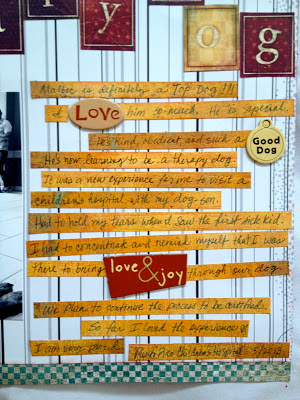 y og
Malbec is definitely a Top Dog!!!
I Love him so much. He is special.
He's kind, obedient and such a Good Dog
He's now learning to be a therapy dog.
It was a new experience for me to visit a
children's hospital with my dog-son.
Had to hold my tears when I saw the first sick kid.
I had to concentrate and remind myself that I was
there to bring love & joy through our dog
We plan to continue the process to be certified.
So far I loved the experience &
I am very proud. Puerto Rico Children's Hospital. 5/2013